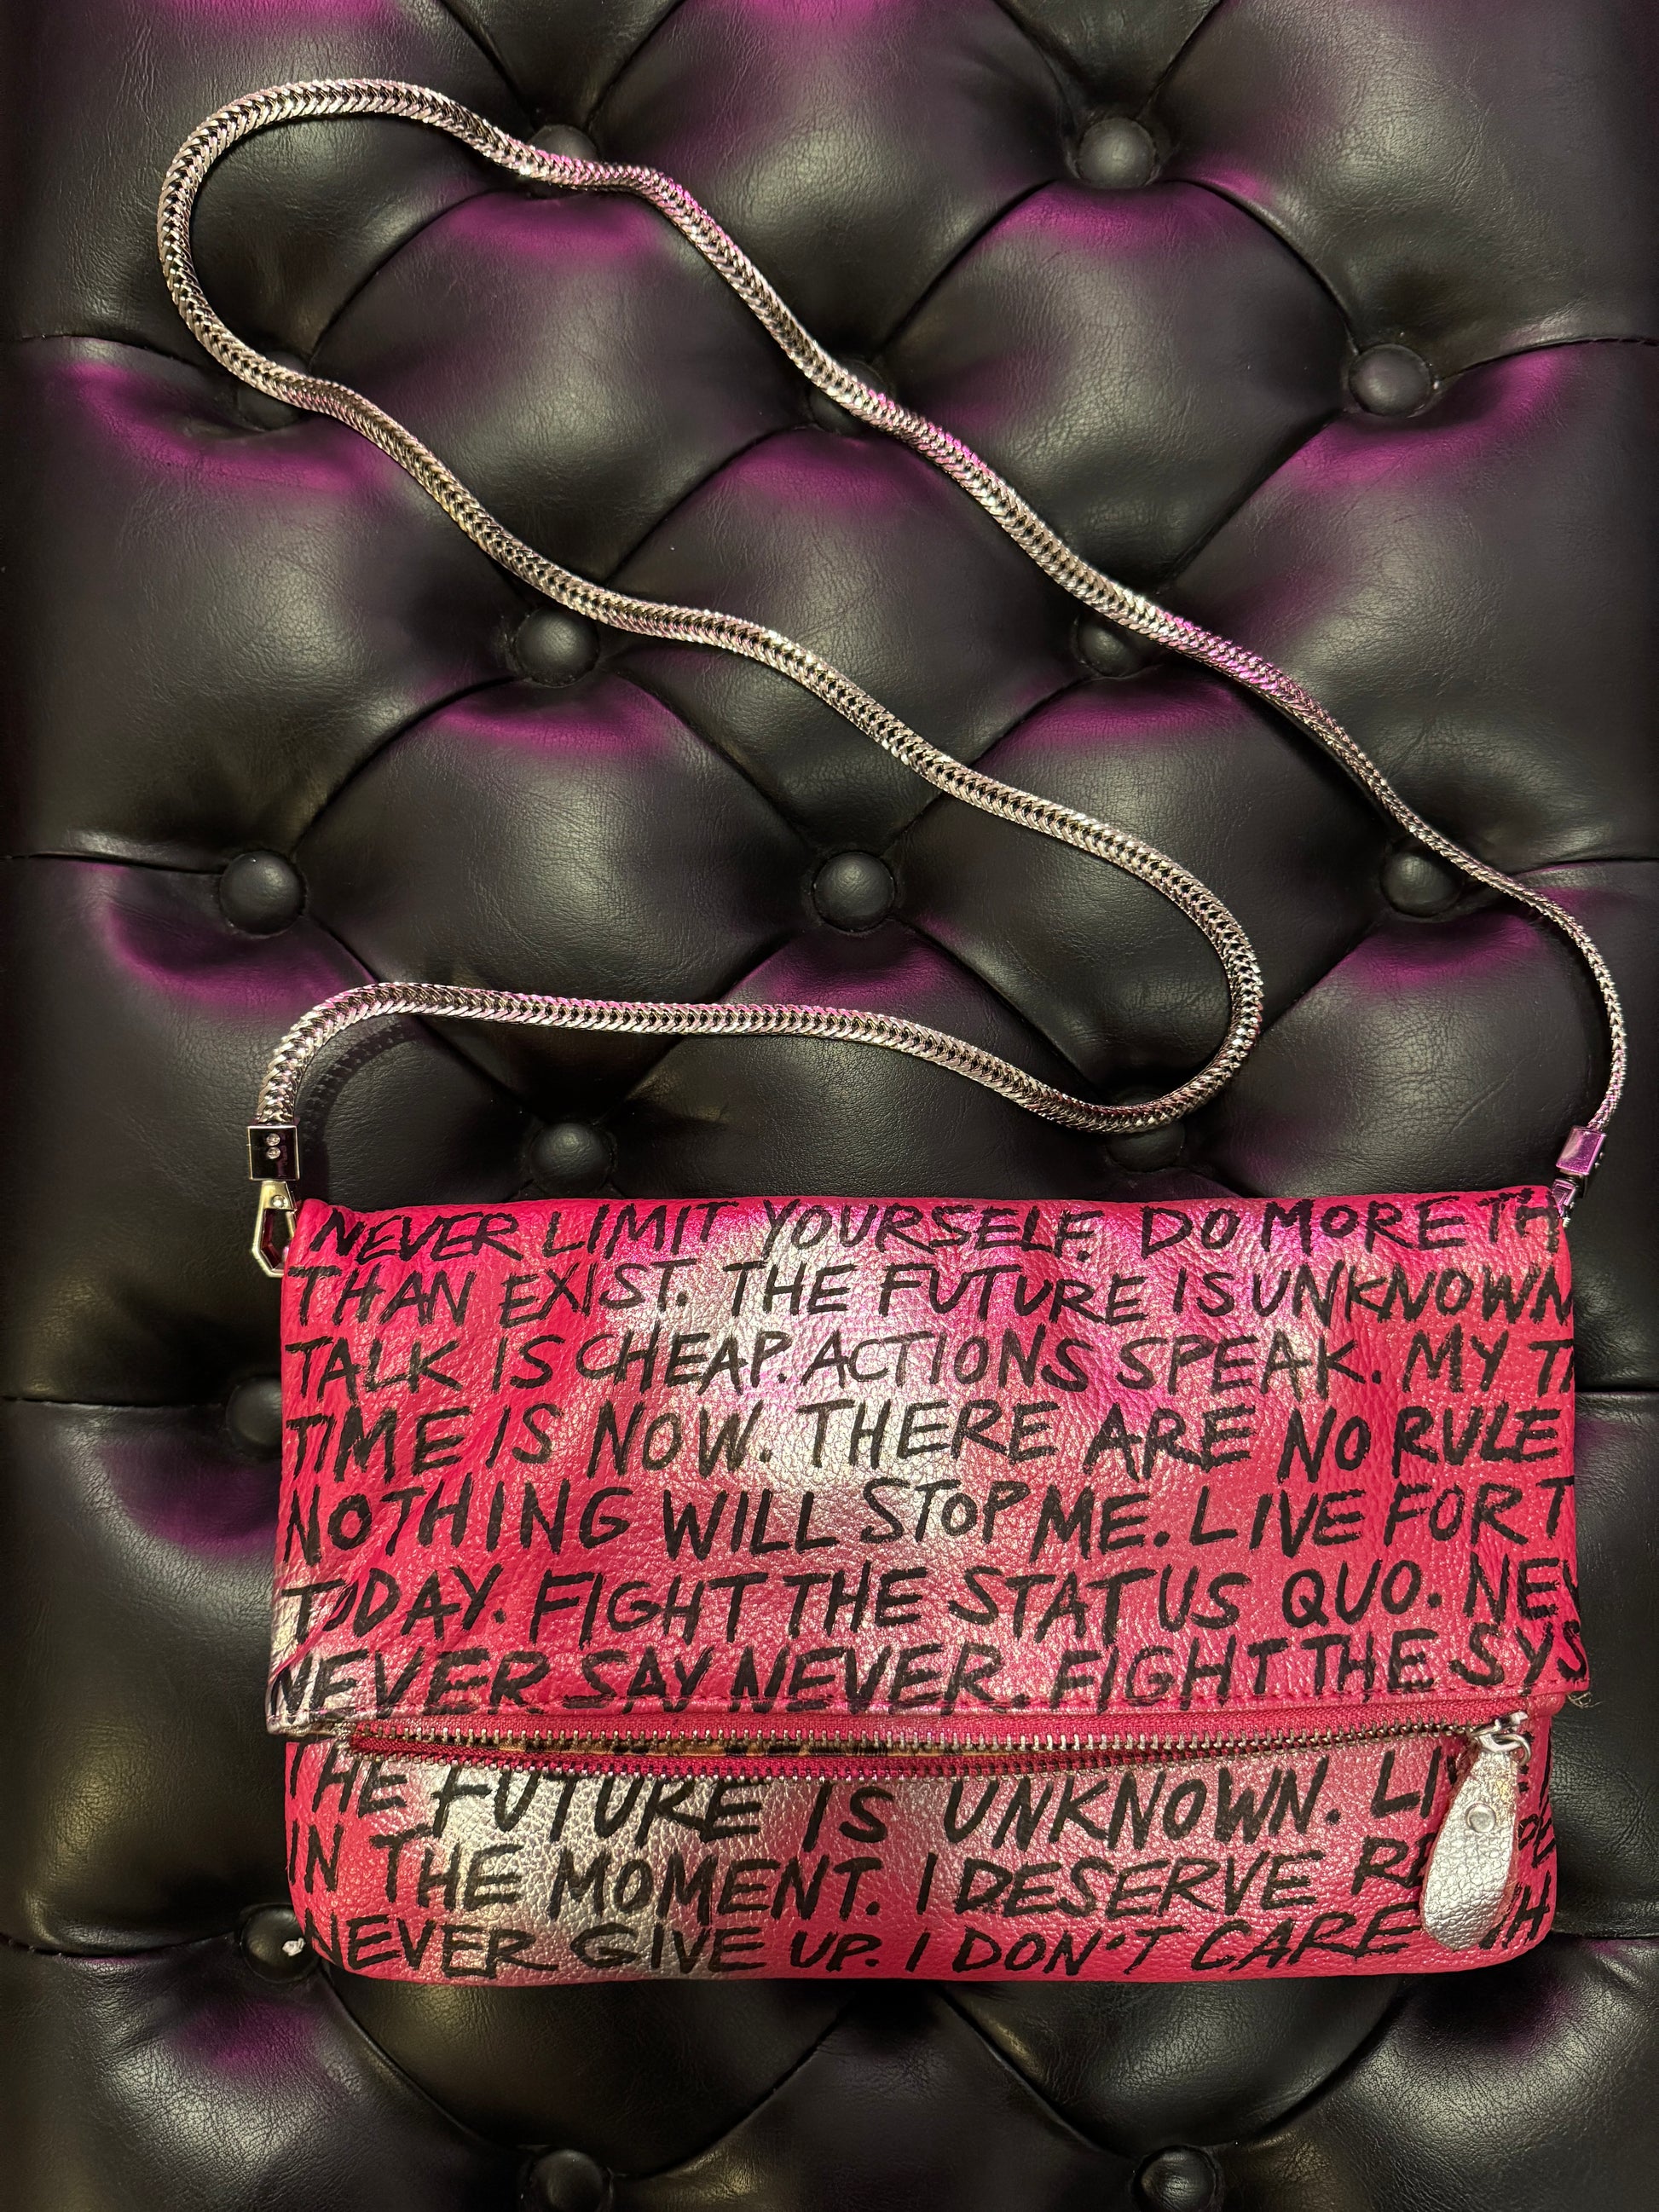 NEVER LIMIT YOURSELF. DO MORE TH
THAN EXIST. THE FUTURE IS UNKNOWN
TALK IS CHEAP. ACTIONS SPEAK. MY TI
TIME IS NOW. THERE ARE NO RULE
NOTHING WILL STOP ME. LIVE FOR T
TODAY. FIGHT THE STATUS QUO. NEV
NEVER SAY NEVER. FIGHT THE SYS
THE FUTURE IS UNKNOWN. LIV
IN THE MOMENT. I DESERVE
NEVER GIVE UP. I DON'T CARE